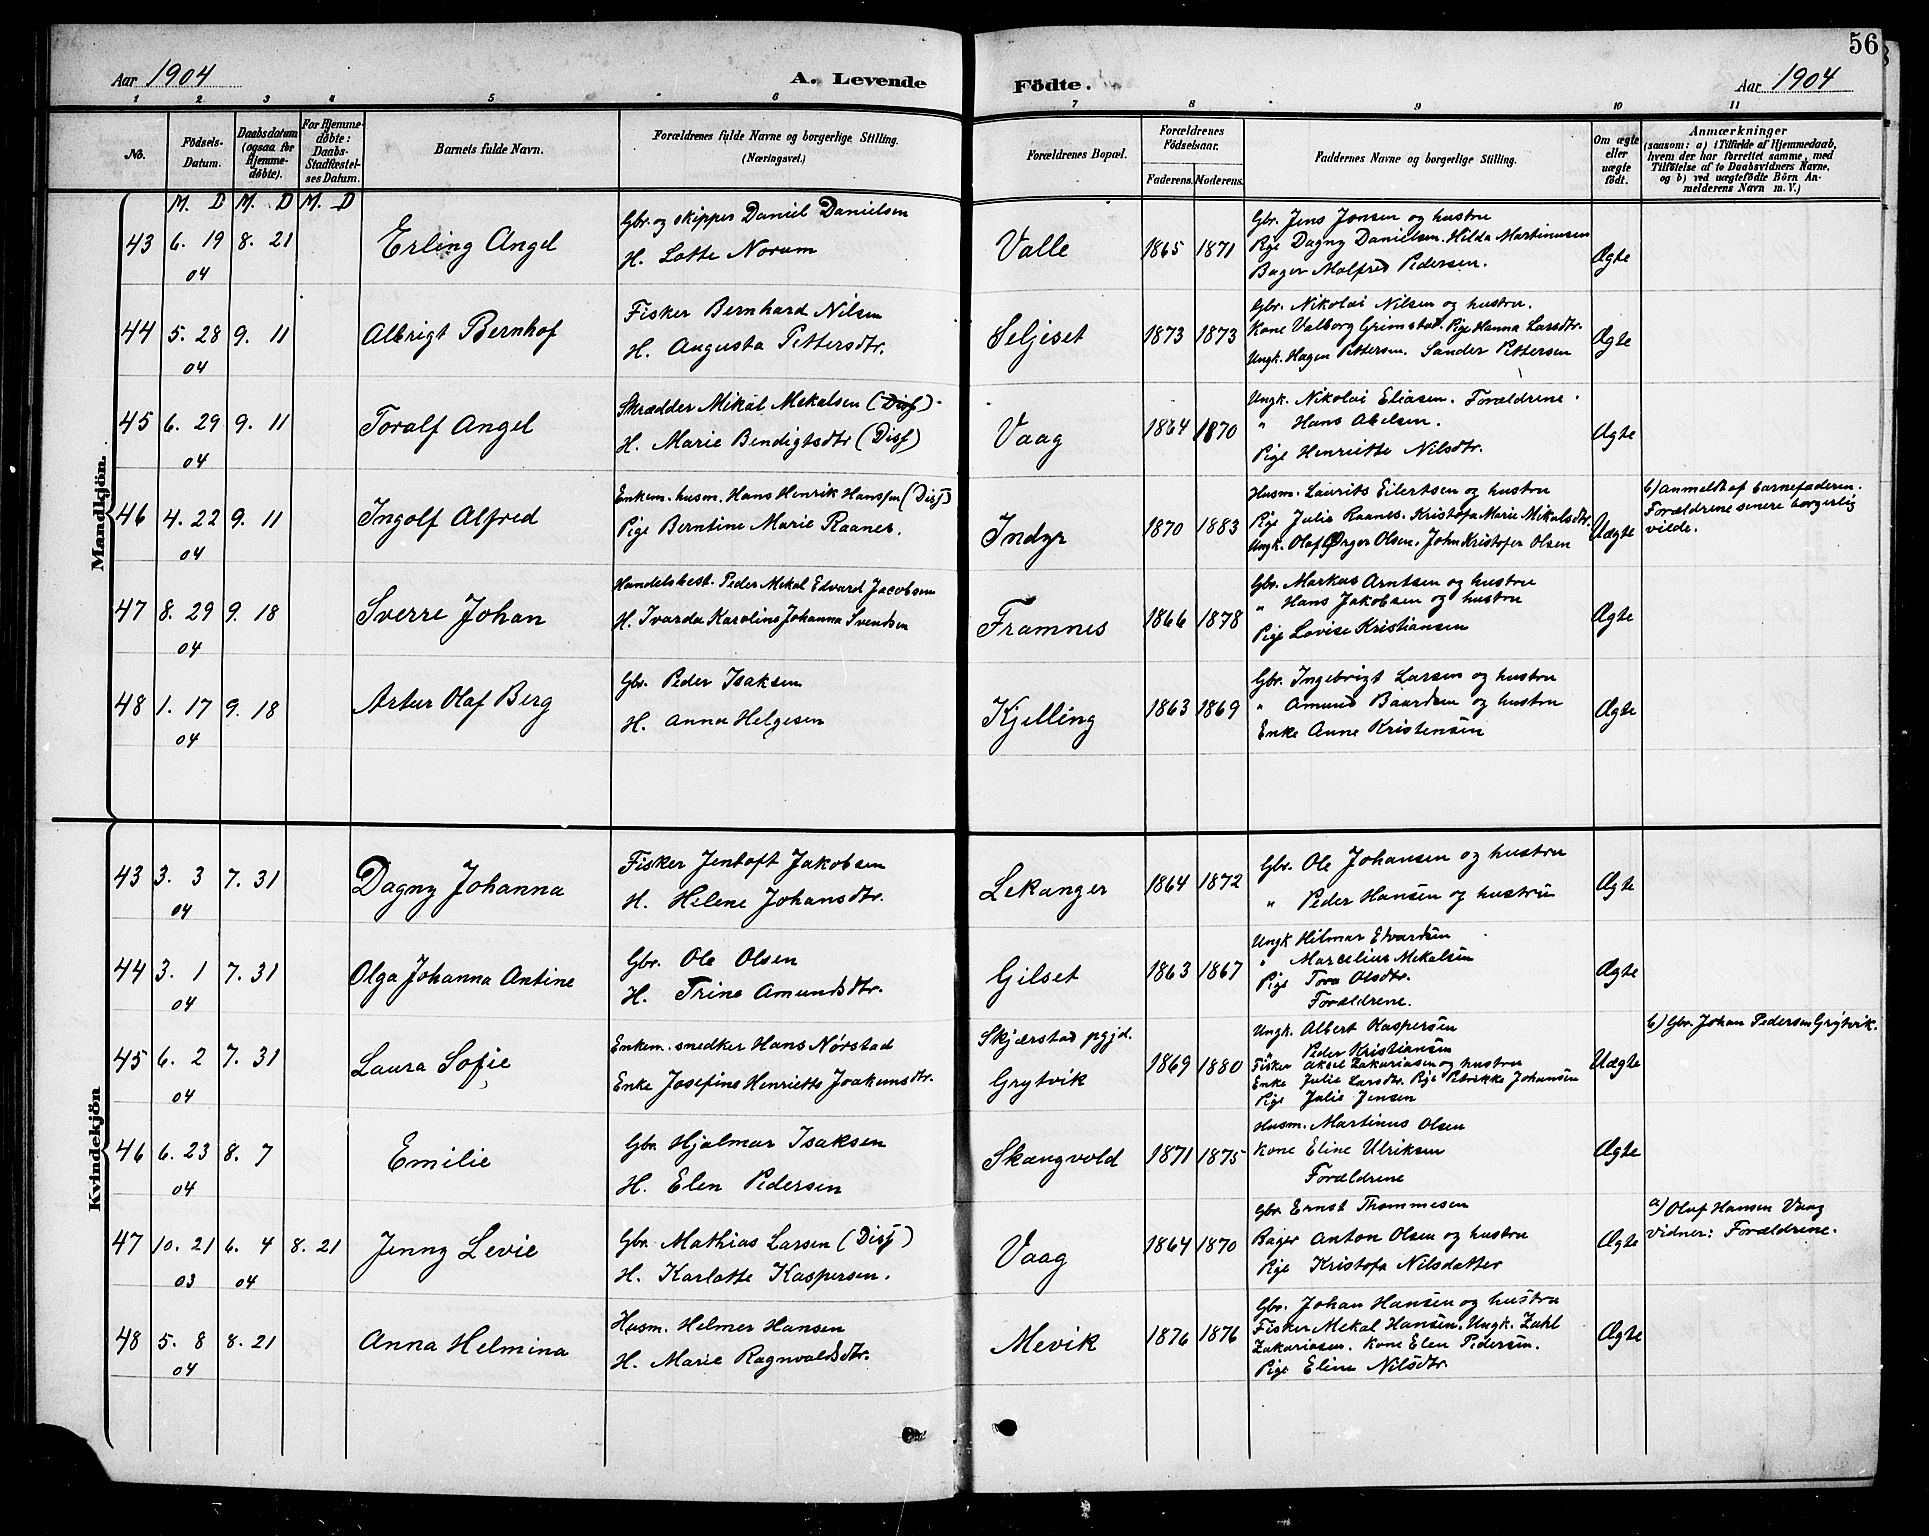 56
Aar 1904
A. Levende Födte.
Aar 1904
1 2 3 4 5 6 7 8 9 10 11
No.
Födsels-Datum.
Daabsdatum (ogsaa for Hjemme-døbte).
For Hjemme-døbte: Daabs-Stadfæstel-ses Datum.
Barnets fulde Navn.
Forældrenes fulde Navne og borgerlige Stilling. (Næringsvei.)
Forældrenes Bopæl.
Forældrenes Födselsaar.
Faderens. Moderens.
Faddernes Navne og borgerlige Stilling.
Om ægte eller uægte født.
Anmærkninger
(saasom: a) i Tilfælde af Hjemmedaab, hvem der har forrettet samme, med Tilføielse af to Daabsvidners Navne, og b) ved uægtefødte Börn An-melderens Navn m. V.)
M. D M. D M. D
Mandkjön.
43 6. 19 04 8. 21 Erling Angel
Gbr. og skipper Daniel Danielsen
H. Lotte Norum
Valle 1865 1871
Gbr. Jens Jonsen og hustru
Pige Dagny Danielsen. Hilda Martinusen
Bager Malfred Pedersen.
Ægte
44 5. 28 04 9. 11 Albrigt Bernhof
Fisker Bernhard Nilsen
H. Augusta Pettersdtr.
Seljeset 1873 1873
Gbr. Nikolai Nilsen og hustru.
Kone Valborg Grimstad. Pige Hanna Larsdtr.
Ungk. Hagen Pettersen. Sander Pettersen
Ægte
45 6. 29 04 9. 11 Toralf Angel
Skrædder Mikal Mekalsen (Disf)
H. Marie Bendigtsdtr (Disf)
Vaag 1864 1870
Ungk. Nikolai Eliasen. Forældrene.
" Hans Abelsen.
Pige Henriette Nilsdtr.
Ægte
46 4. 22 04 9. 11 Ingolf Alfred
Enkem. husm. Hans Henrik Hanssen (Disf)
Pige Berntine Marie Raanes.
Indyr 1870 1883
Husm. Laurits Eilertsen og hustru
Pige Julie Raanes. Kristofa Marie Mikalsdtr.
Ungk. Olaf Ørger Olsen. John Kristofer Olsen
Uægte
b) Anmeldt af barnefaderen.
Forældrene senere borgerlig
vilde.
47 8. 29 04 9. 18 Sverre Johan
Handelsbest. Peder Mekal Edvard Jacobsen
H. Ivarda Karoline Johanna Svendsen
Framnes 1866 1878
Gbr. Markus Arntsen og hustru
" Hans Jakobsen og hustru
Pige Lovise Kristiansen
Ægte
48 1. 17 04 9. 18 Artur Olaf Berg
Gbr. Peder Isaksen
H. Anna Helgesen
Kjelling 1863 1869
Gbr. Ingebrigt Larsen og hustru
" Amund Baardsen og hustru
Enke Anne Kristensen
Ægte
Kvindekjön
43 3. 3 04 7. 31 Dagny Johanna
Fisker Jentoft Jakobsen
H. Helene Johansdtr.
Lekanger 1864 1872
Gbr. Ole Johansen og hustru
" Peder Hansen og hustru
Ægte
44 3. 1 04 7. 31 Olga Johanna Antine
Gbr. Ole Olsen
H. Trine Amundsdtr.
Gilset 1863 1867
Ungk Hilmar Edvardsen
" Marcelius Mekalsen
Pige Tora Olsdtr.
Forældrene.
Ægte
45 6. 2 04 7. 31 Laura Sofie
Enkem. snedker Hans Nørstad
Enke Josefine Henriette Joakimsdtr.
Skjærstad pgjd.
Grytvik 1869 1880
Ungk. Albert Kaspersen
" Peder Kristiansen
Fisker Aksel Zakariasen og hustru
Enke Julie Larsdtr. Pige Petrikke Johansen
Pige Julie Jensen
Uægte
b) Gbr. Johan Pedersen Grytvik.
46 6. 23 04 8. 7 Emilie
Gbr. Hjalmar Isaksen
H. Elen Pedersen
Skangvold 1871 1875
Husm. Martinus Olsen
Kone Eline Ulriksen
Forældrene
Ægte
47 10. 21 03 6. 4 04 8. 21 Jenny Levie
Gbr. Mathias Larsen (Disf)
H. Karlotte Kaspersen.
Vaag 1864 1870
Gbr. Ernst Thommesen
Bager Anton Olsen og hustru
Pige Kristofa Nilsdatter
Ægte
a) Oluf Hansen Vaag
Vidner: Forældrene.
48 5. 8 04 8. 21 Anna Helmina
Husm. Helmer Hansen
H. Marie Ragnvaldsdtr.
Mevik 1876 1876
Gbr. Johan Hansen og hustru
Fisker Mekal Hansen. Ungk. Zahl
Zakariasen. Kone Elen Pedersen.
Pige Eline Nilsdtr.
Ægte